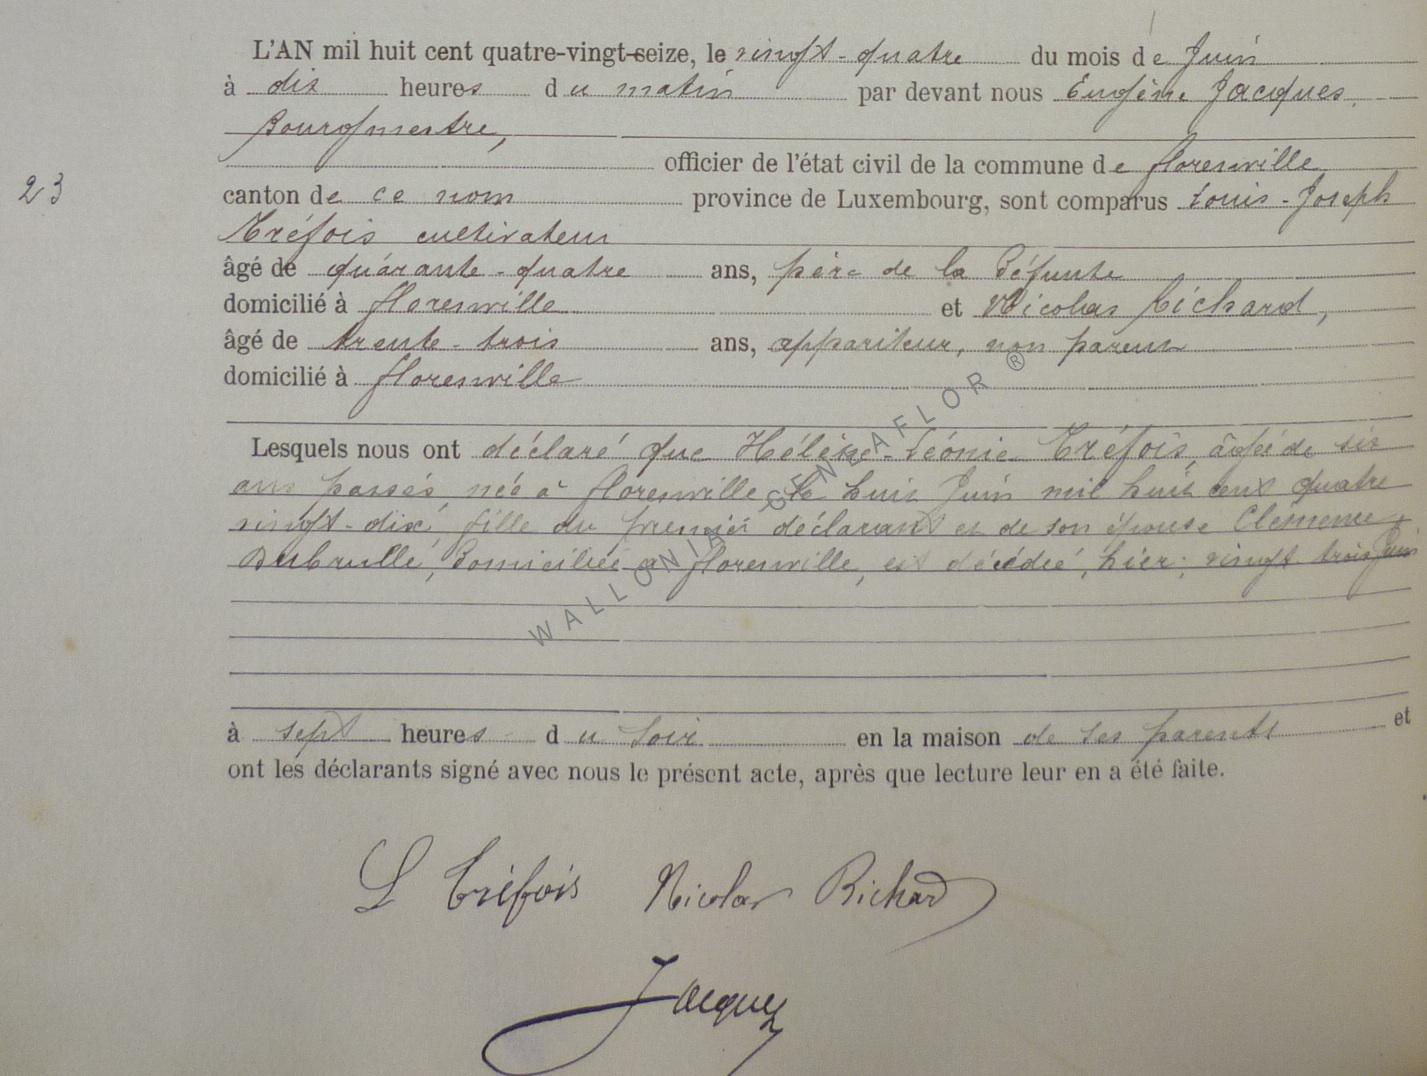 L'AN mil huit cent quatre-vingt-seize, le vingt-quatre du mois de Juin
à dix heures du matin par devant nous Eugène Jacques,
Bourgmestre,
officier de l'état civil de la commune de florenville
23
canton de ce nom province de Luxembourg, sont comparus Louis-Joseph
Tréfois cultivateur
âgé de quarante-quatre ans, père de la défunte
domicilié à florenville et Nicolas Richard,
âgé de trente-trois ans, appariteur, non parent
domicilié à florenville
Lesquels nous ont déclaré que Hélène-Léonie Tréfois, âgée de six
ans passés née à florenville le huit Juin mil huit cent quatre
vingt-dix, fille du premier déclarant et de son épouse Clémence
domiciliée à florenville, est décédée, hier, vingt trois Juin
à sept heures du soir en la maison de ses parents et
ont les déclarants signé avec nous le présent acte, après que lecture leur en a été faite.
L Tréfois Nicolas Richard
Jacques
WALLONIA-GENEAFLOR ®